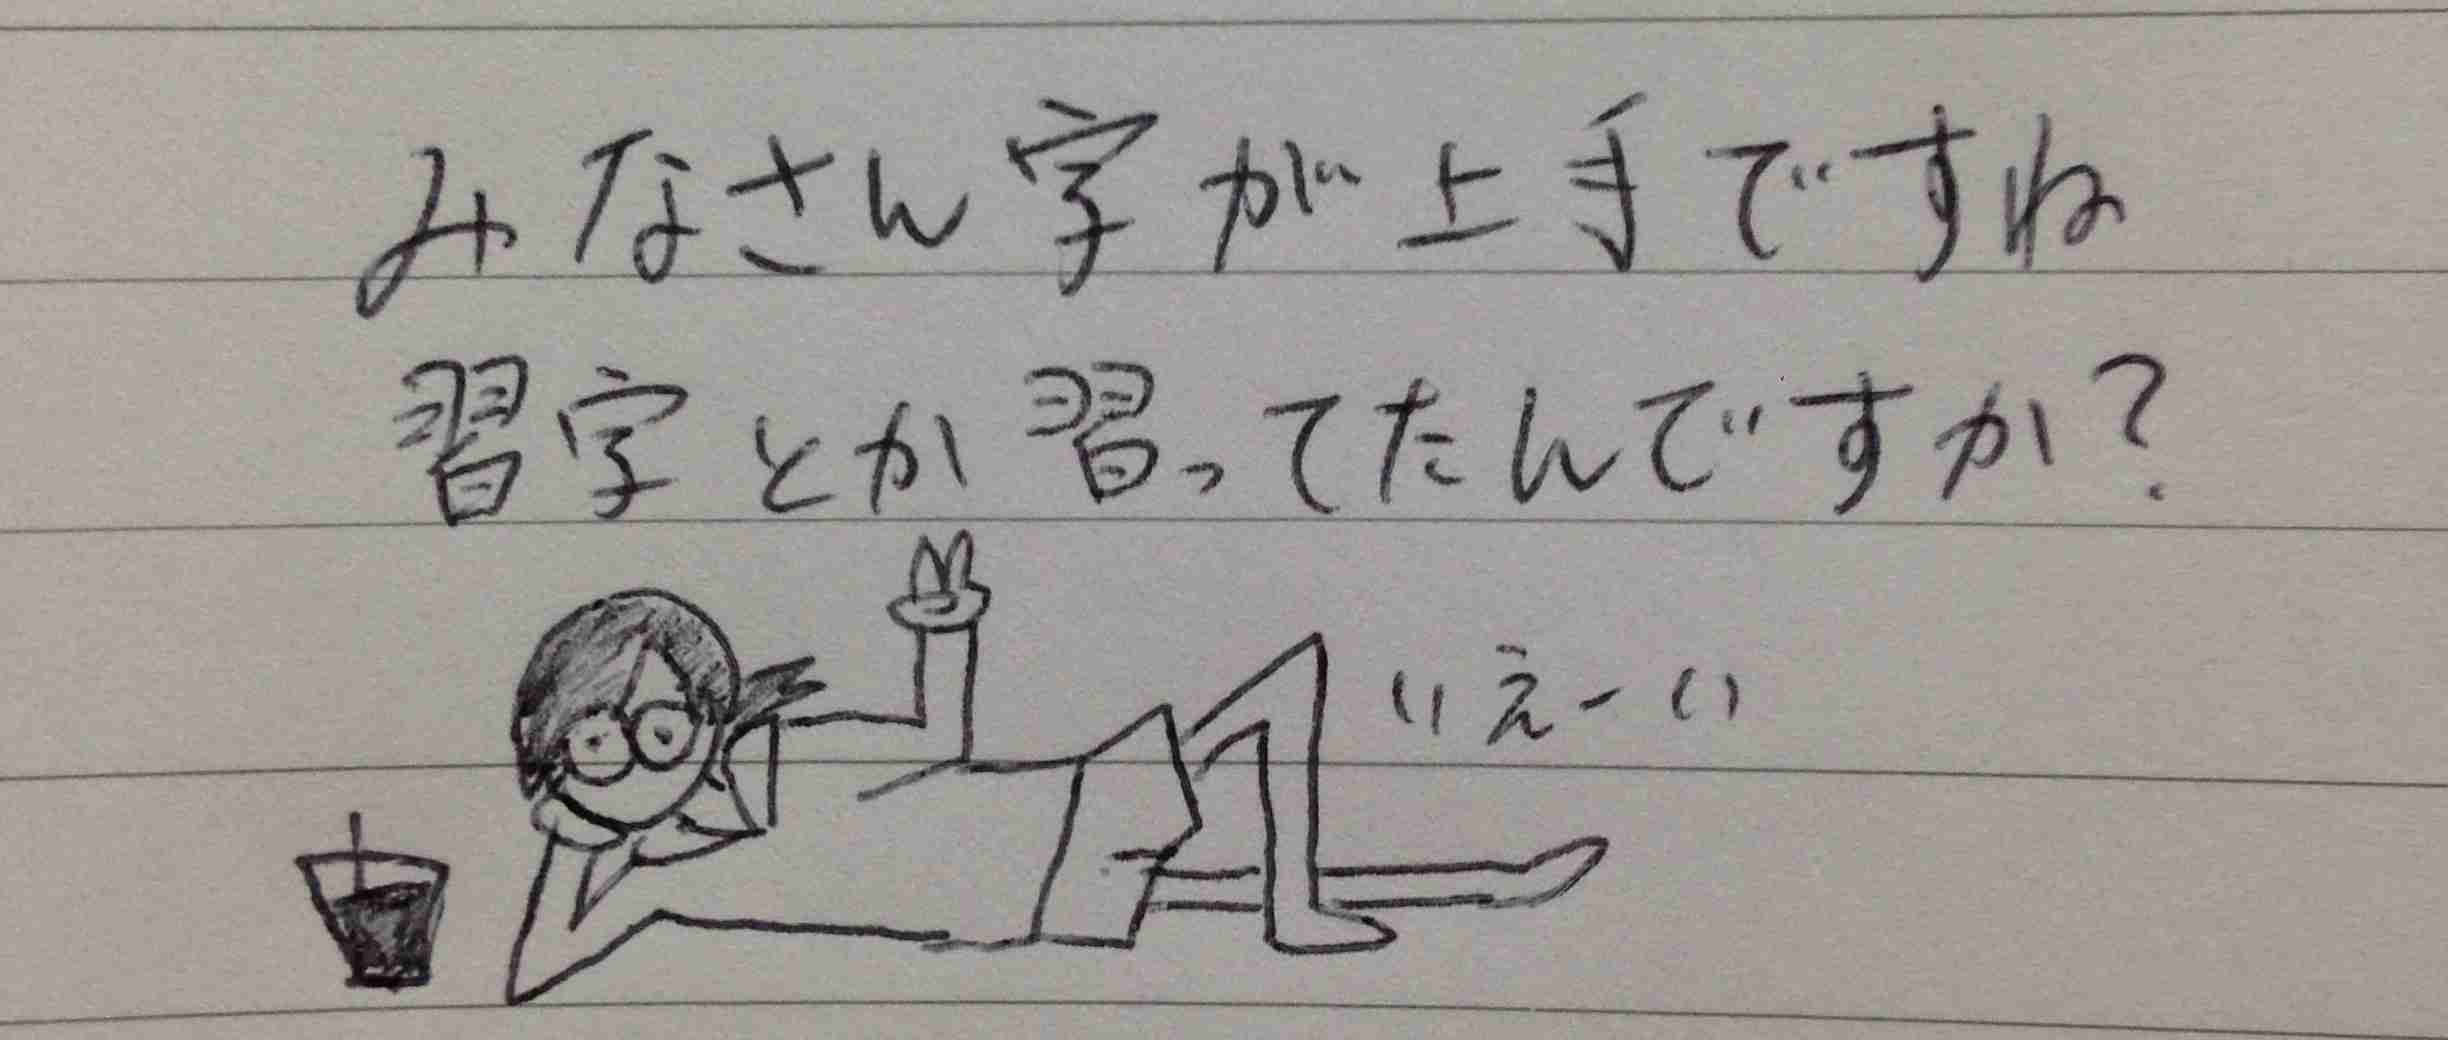 みなさん字が上手ですね
習字とか習ってたんですか?
いえーい